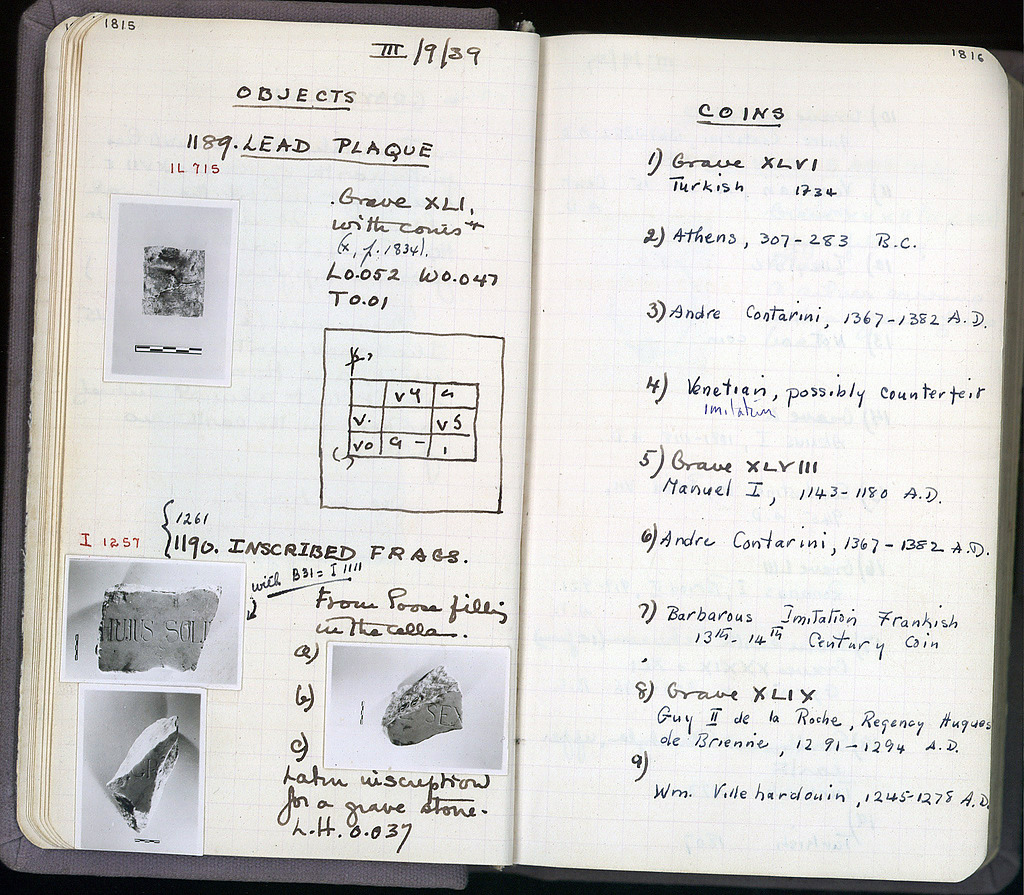 1815
III/9/39
OBJECTS
1189. LEAD PLAQUE
IL 715
Grave XLI,
with coins
(x, p. 1834).
L0.052 W0.047
T0.01
v4 a
v. v5
vo a – 1
1261
I 1257
1190. INSCRIBED FRAGS.
with B31 = I 1111
From loose filling
in the cella.
a)
IUIUS SAL
b)
SEX
c)
Latin inscription
for a grave stone.
L.H. 0.037
1816
COINS
1) Grave XLVI
Turkish 1734
2) Athens, 307-283 B.C.
3) Andre Contarini, 1367-1382 A.D.
4) Venetian, possibly counterfeit
imitation
5) Grave XLVIII
Manuel I, 1143-1180 A.D.
6) Andre Contarini, 1367-1382 A.D.
7) Barbarous Imitation Frankish
13th-14th Century Coin
8) Grave XLIX
Guy II de la Roche, Regency Hugues
de Brienne, 1291-1294 A.D.
9)
Wm. Villehardouin, 1245-1278 A.D.